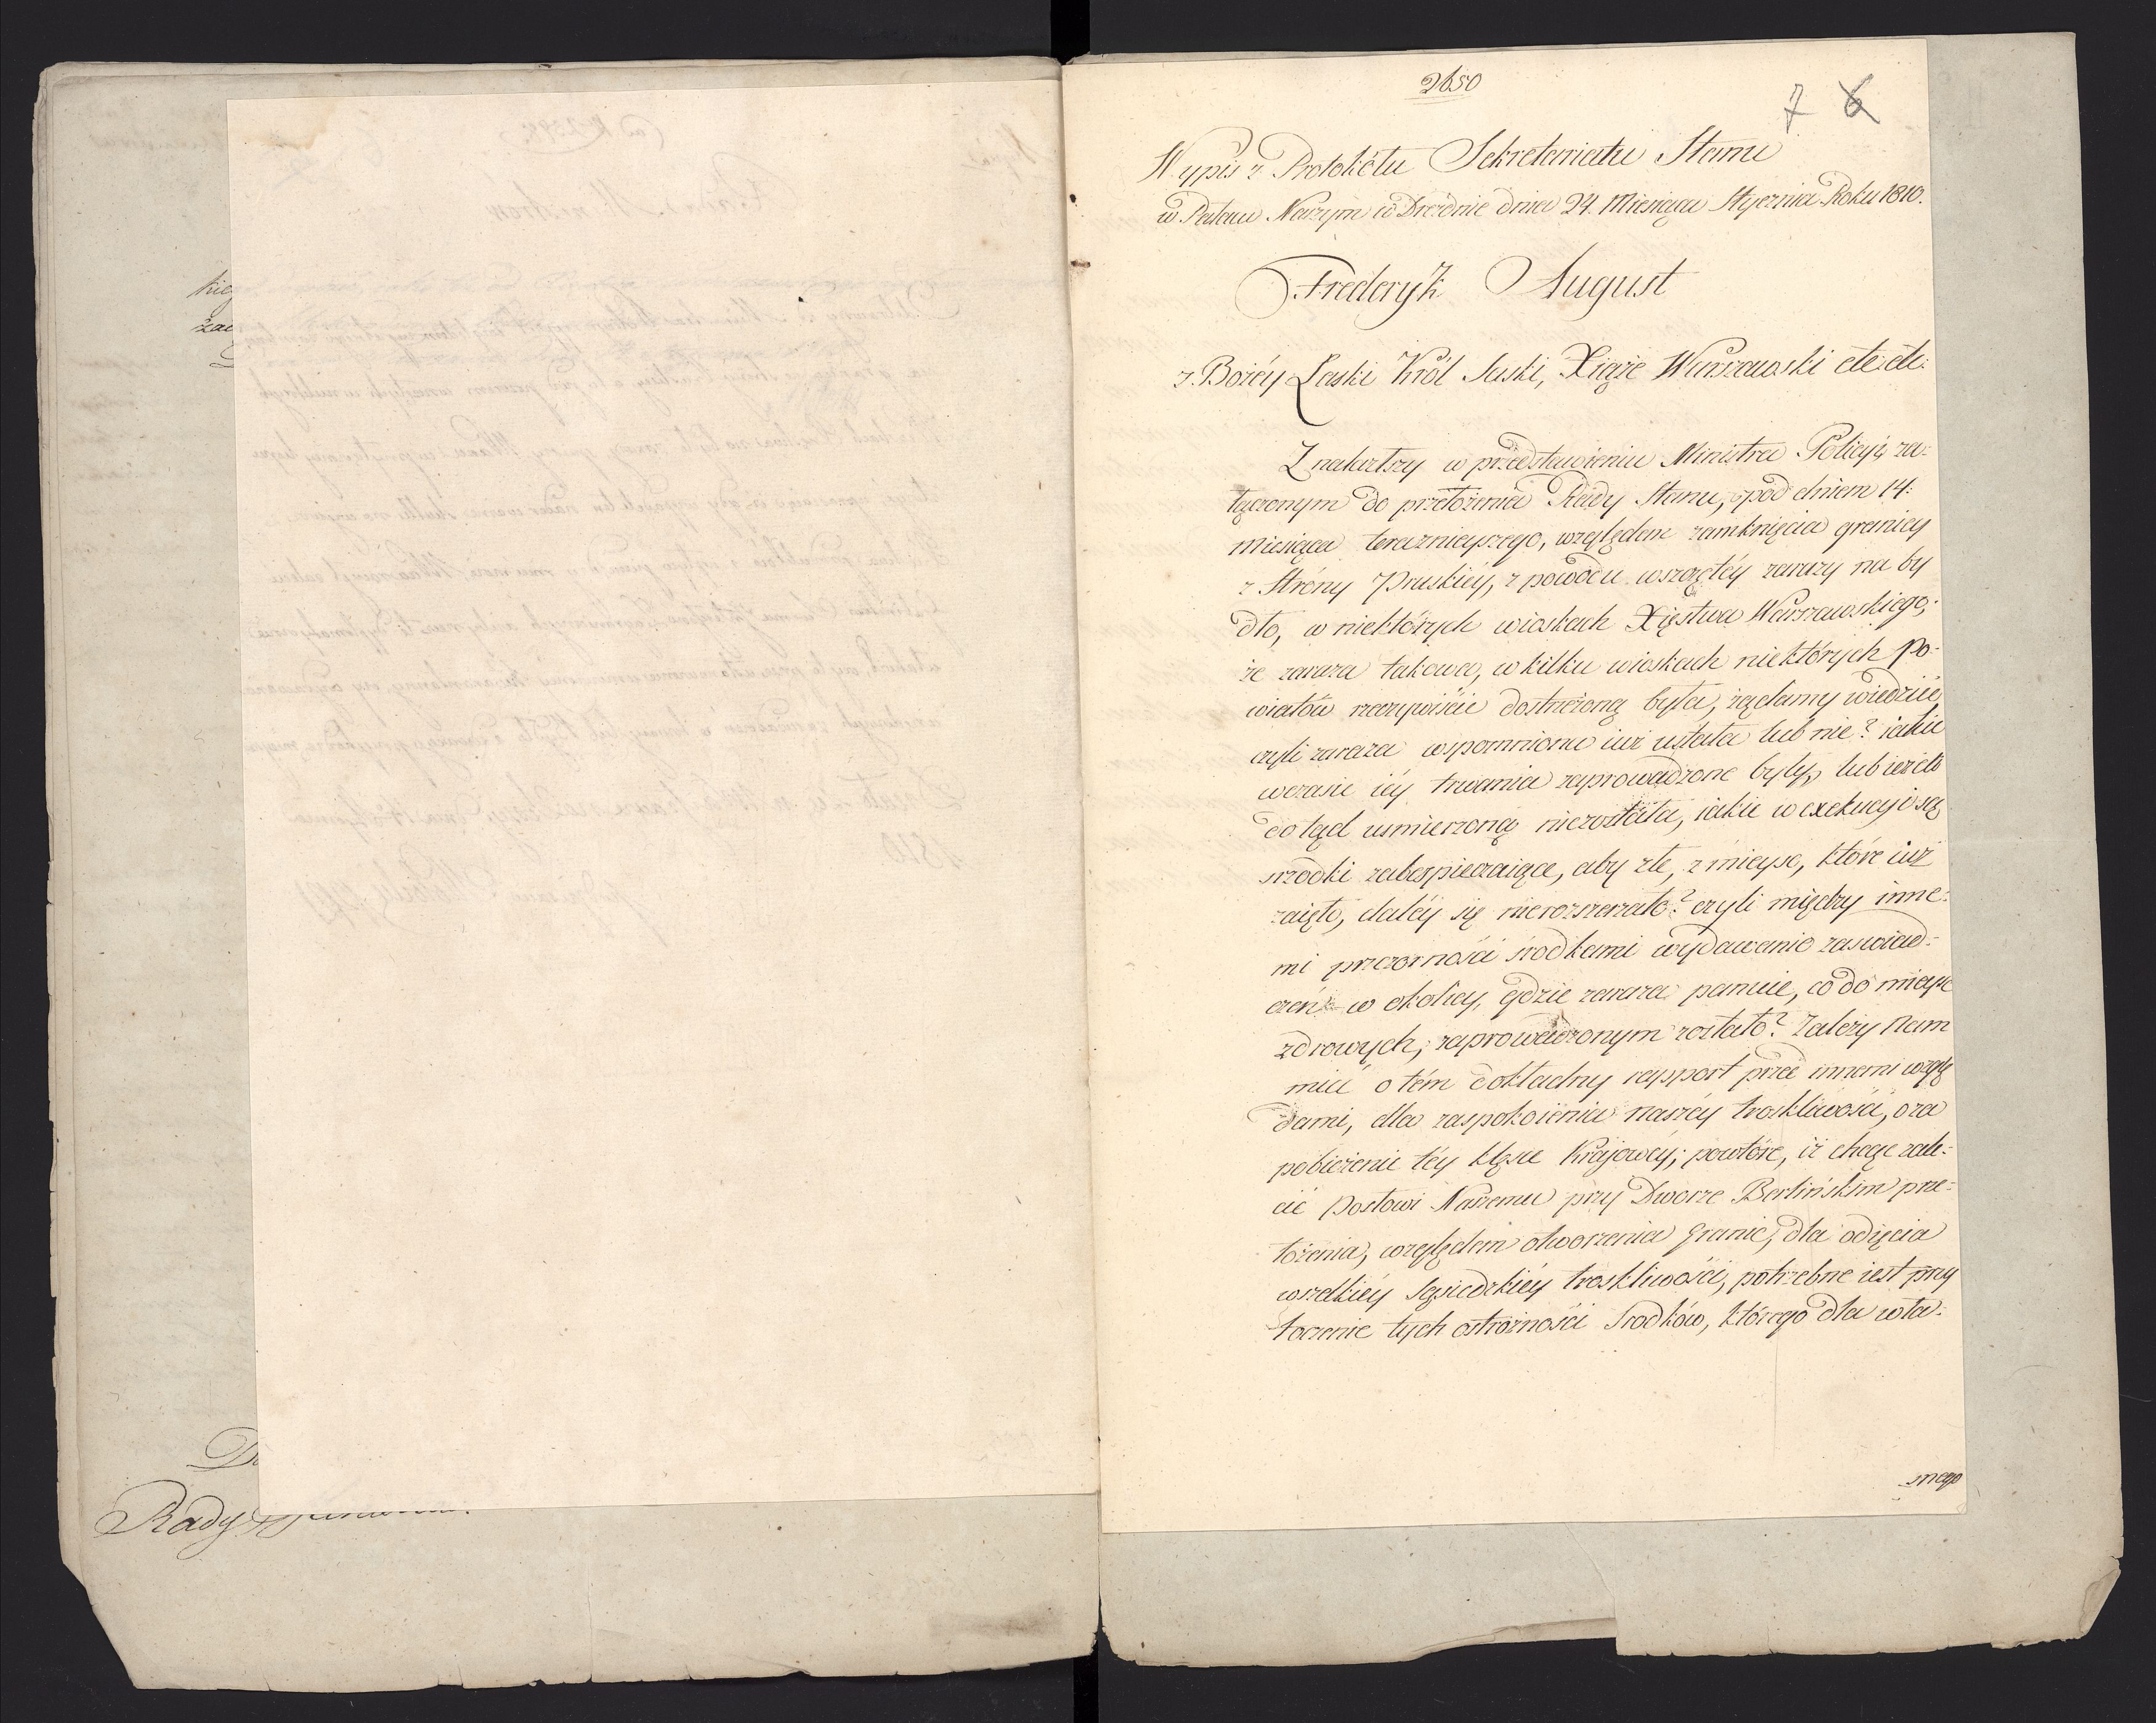 kie
zac
D
Rady
2650
7 6
Wypis z Protokółu Sekretariatu Stanu
w Pałacu Naszym w Dreźnie dnia 24. Miesiąca Stycznia Roku 1810.
Frederyk August
z Bożéy Łaski Król Saski, Xiąże Warszawski etc: etc:
Znalazłszy w przedstawieniu Ministra Policyi, za-
łączonym do przełożenia Rady Stanu, pod dniem 14:
miesiąca teraznieyszego, względem zamknięcia granicy
z Stróny Pruskiéy, z powodu wszczętéy zarazy na by
dło, w niektórych wioskach Xięstwa Warszawskiego;
że zaraza takowa, w kilku wioskach niektórych Po-
wiatów rzeczywiście dostrzeżoną była, żądamy wiedzieć
czyli zaraza wspomniona iuż ustała lub nie? iakie
wczasie iéy trwania zaprowadzone były, lub ieżeli
do tąd usmierzoną niezostała, iakie w exekucyi są
srzodki zabespieczaiące, aby złe, z mieysc, które iuż
zaięło, daléy się nierozszerzało? czyli między inne-
mi przezorności srodkami wydawanie zaswiad-
czeń w okolicy, gdzie zaraza panuie, co do mieysc
zdrowych, zaprowadzonym zostało? Zależy Nam
mieć o tém dokładny rapport przed innemi wzglę
dami, dla zaspokoienia naszéy troskliwości, o za
pobieżenie téy klęsce Krajowéy; powtóre, iż chcąc zale-
cić Posłowi Naszemu przy Dworze Berlińskim prze-
łożenia, względem otworzenia granic, dla odięcia
wszelkiéy Sąsiedzkiéy troskliwości, potrzebne iest przy
toczenie tych ostrożności Srodków, którego dla wła-
snego